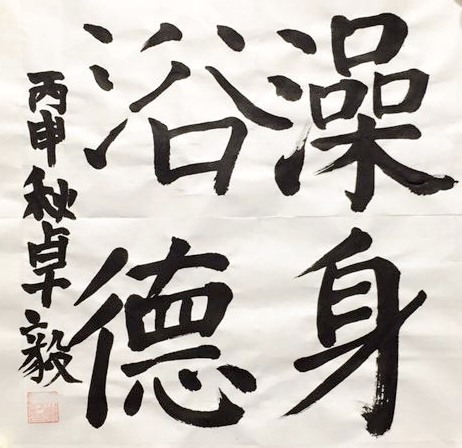 澡身
浴德
丙申秋卓毅